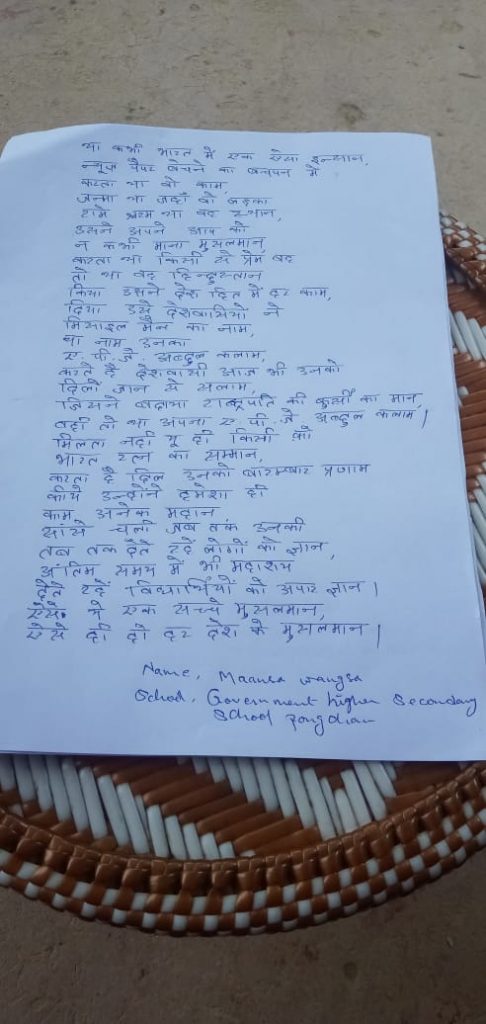 था कभी भारत में एक ऐसा इन्सान,
न्यूज पेपर बेचने का बचपन में
करता था वो काम,
जन्मा था जहाँ वो लड़का
था वह स्थान,
उसने अपने आप को
न कभी माना मुसलमान,
करता था किसी से प्रेम वह
तो था वह हिन्दुस्तान
किया उसने देश हित में हर काम,
दिया उसे देशवासियो ने
मिसाइल मैन का नाम,
था नाम उनका
ए. पी. जे. अब्दुल कलाम,
करते है देशवासी आज भी उनको
दिलो जान से सलाम,
जिसने बढ़ाया राष्ट्रपति की कुर्सी का मान
वही तो था अपना ए. पी. जे अब्दुल कलाम|
मिलता नही यू ही किसी को
भारत रत्न का सम्मान,
करता है दिल उनको बारम्बार प्रणाम
कीये उन्होंने हमेशा ही
काम अनेक महान
सांसे चली जब तक उनकी
तब तक देते रहे लोगों को ज्ञान,
अंतिम समय में भी महाशय
देते रहे विधार्थियों को अपार ज्ञान|
ऐसे थे एक सच्चे मुसलमान,
ऐसे ही हो हर देश के मुसलमान|
Name, Maansa wangsa
School, Government higher Secondary
School pongchau